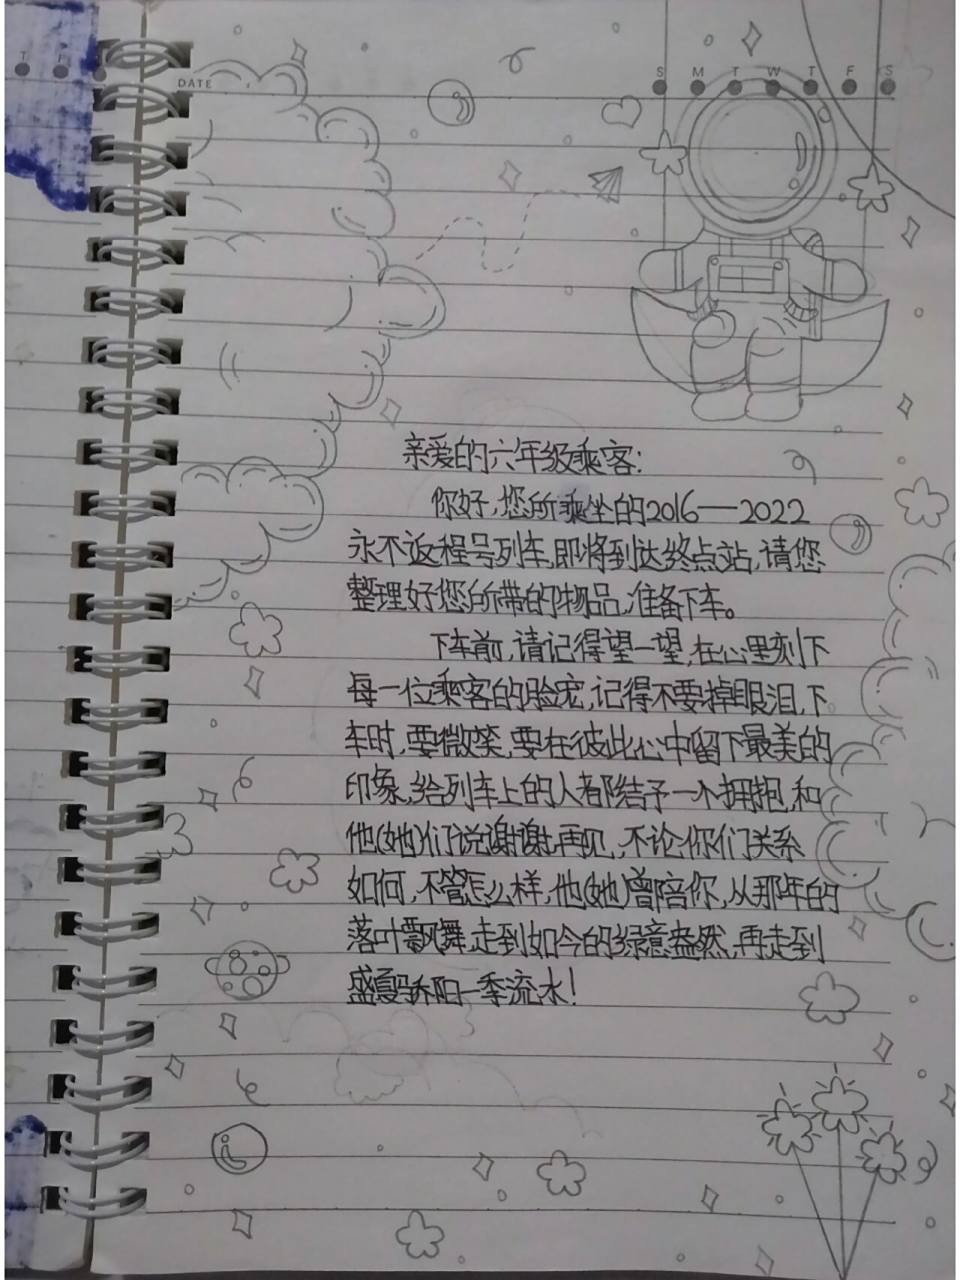 T F
DATE
S M T W T F S
亲爱的六年级乘客:
你好,您所乘坐的2016——2022
永不返程号列车,即将到达终点站,请您
整理好您所带的物品,准备下车。
下车前,请记得望一望,在心里刻下
每一位乘客的脸宠,记得不要掉眼泪,下
车时,要微笑,要在彼此心中留下最美的
印象,给列车上的人都结予一个拥抱,和
他(她)们说谢谢,再见,不论你们关系
如何,不管怎么样,他(她)曾陪你,从那年的
落叶飘舞,走到如今的绿意盎然,再走到
盛夏骄阳一季流水!